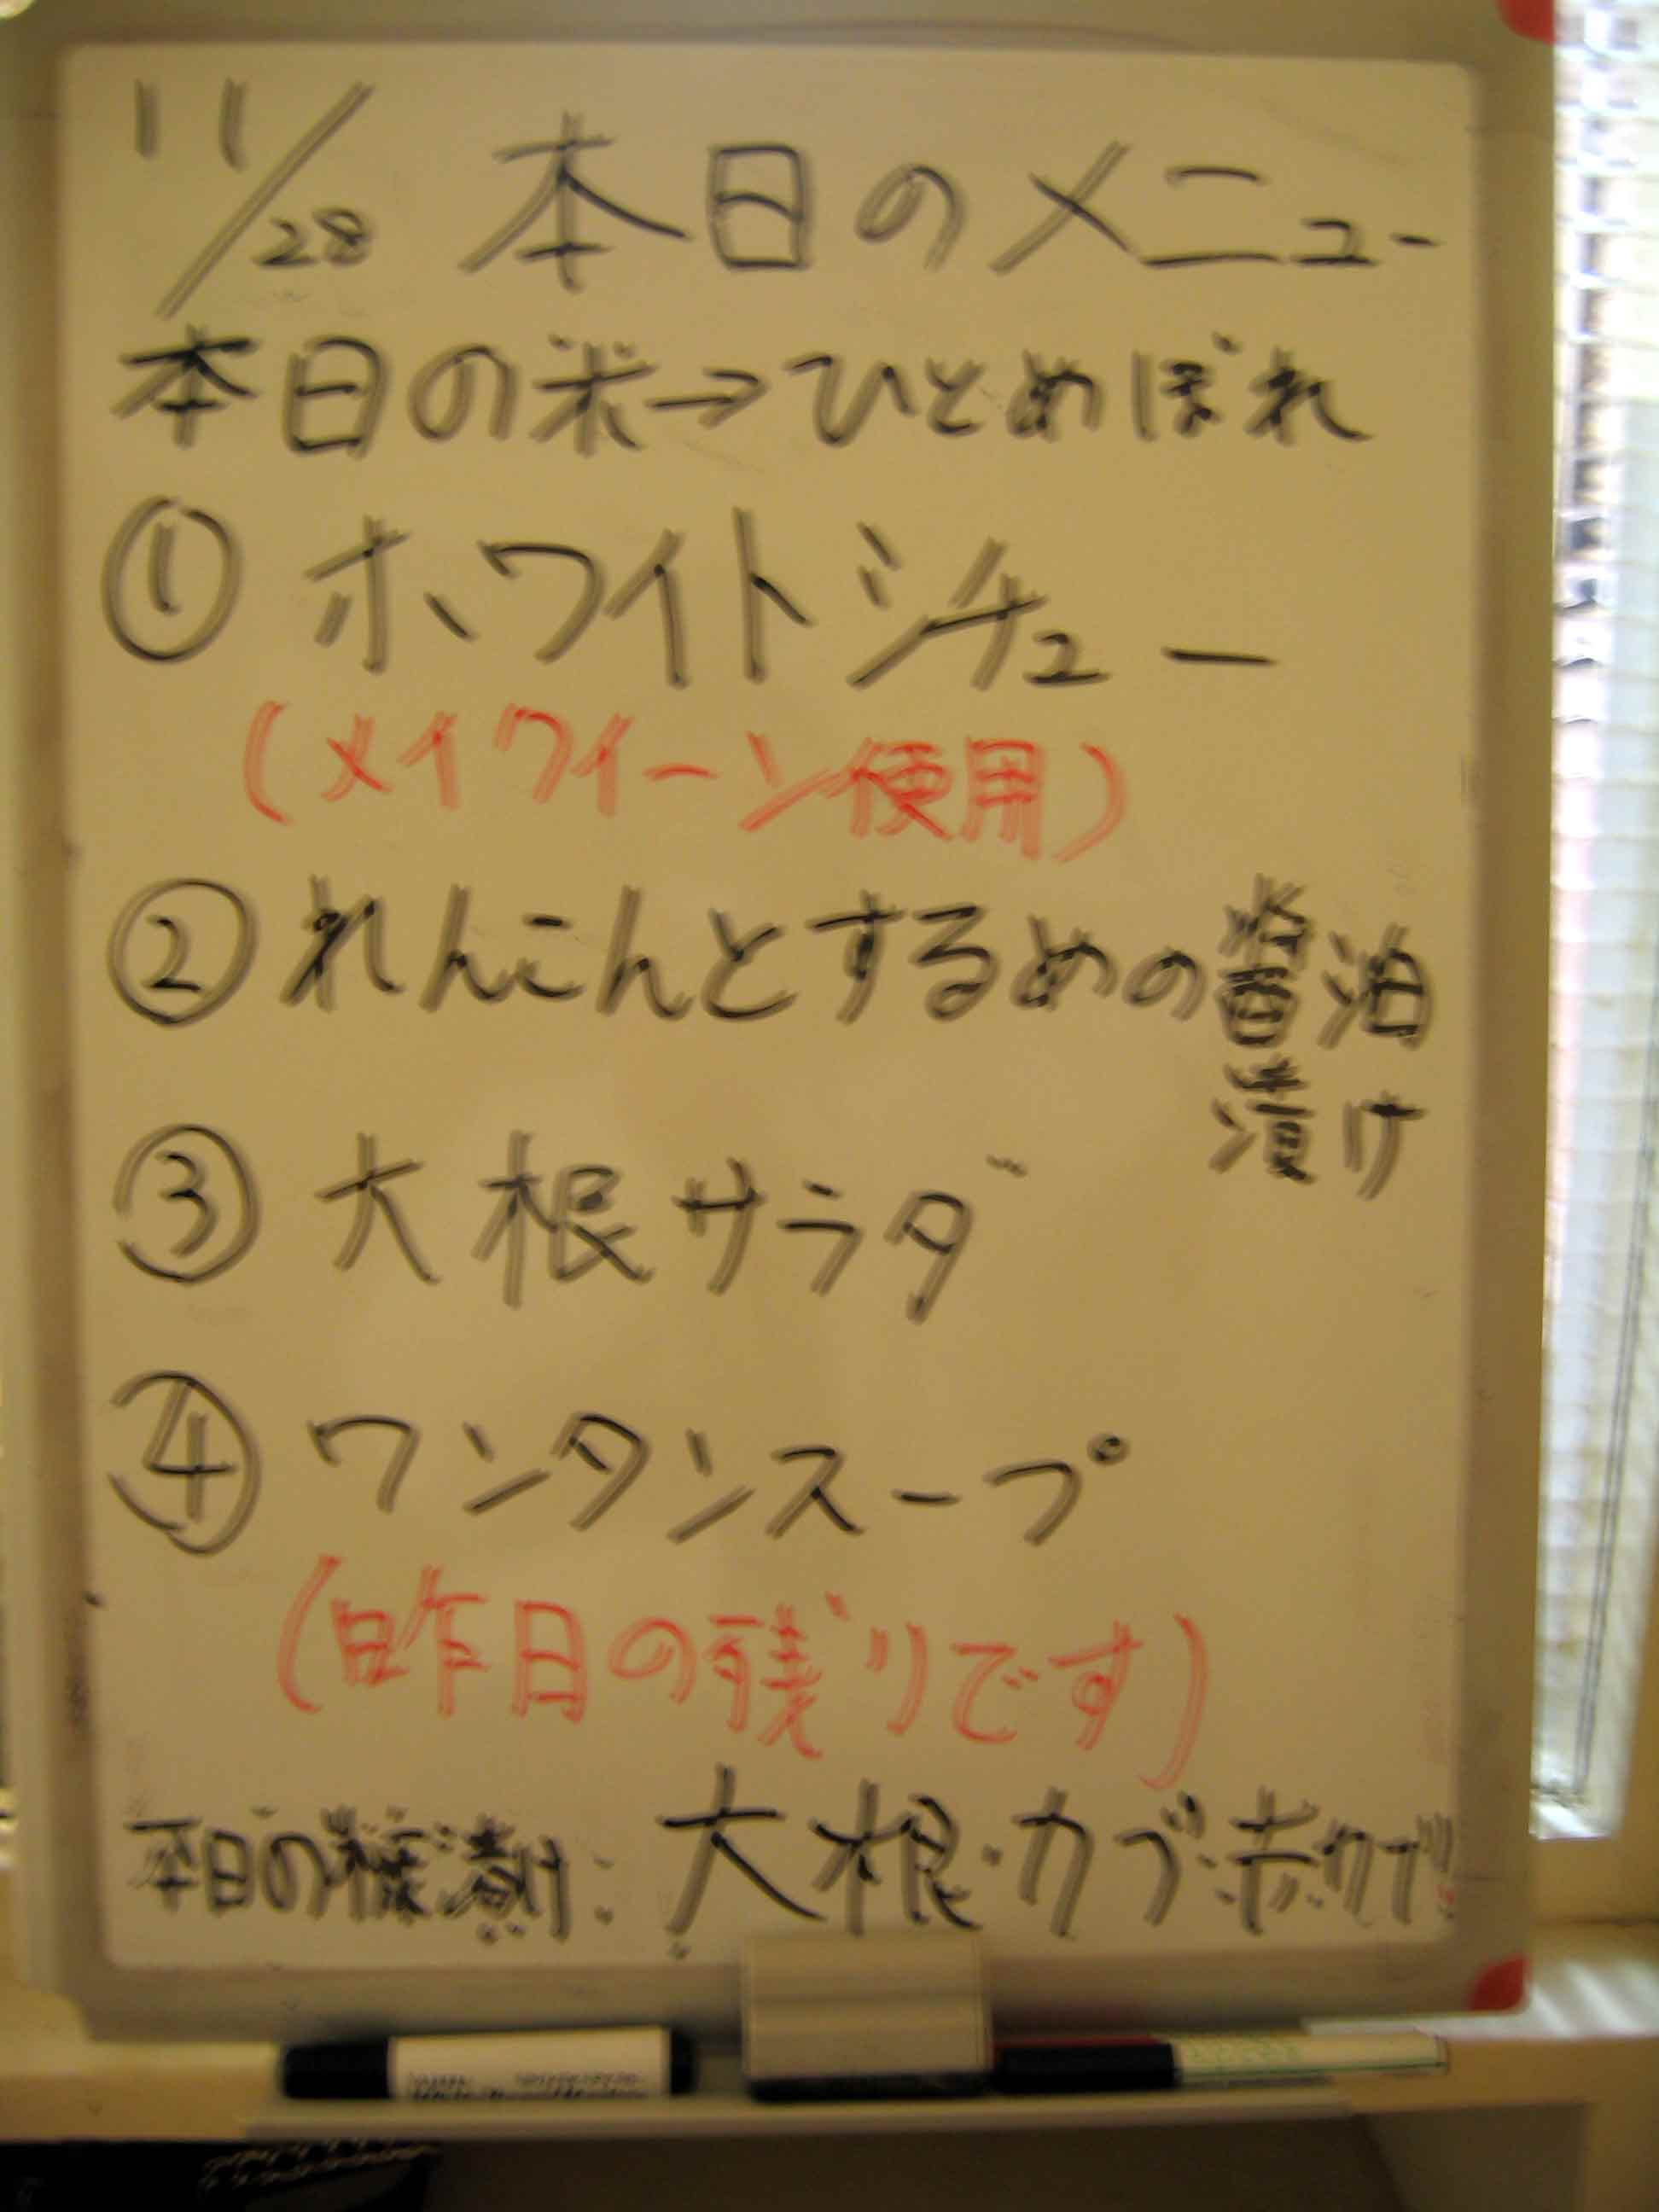 11/28 本日のメニュー
本日の米→ひとめぼれ
① ホワイトシチュー
(メイクイーン使用)
② れんこんとするめの醤油
漬け
③ 大根サラダ
④ ワンタンスープ
(昨日の残りです)
本日の糠漬け: 大根・カブ・赤カブ